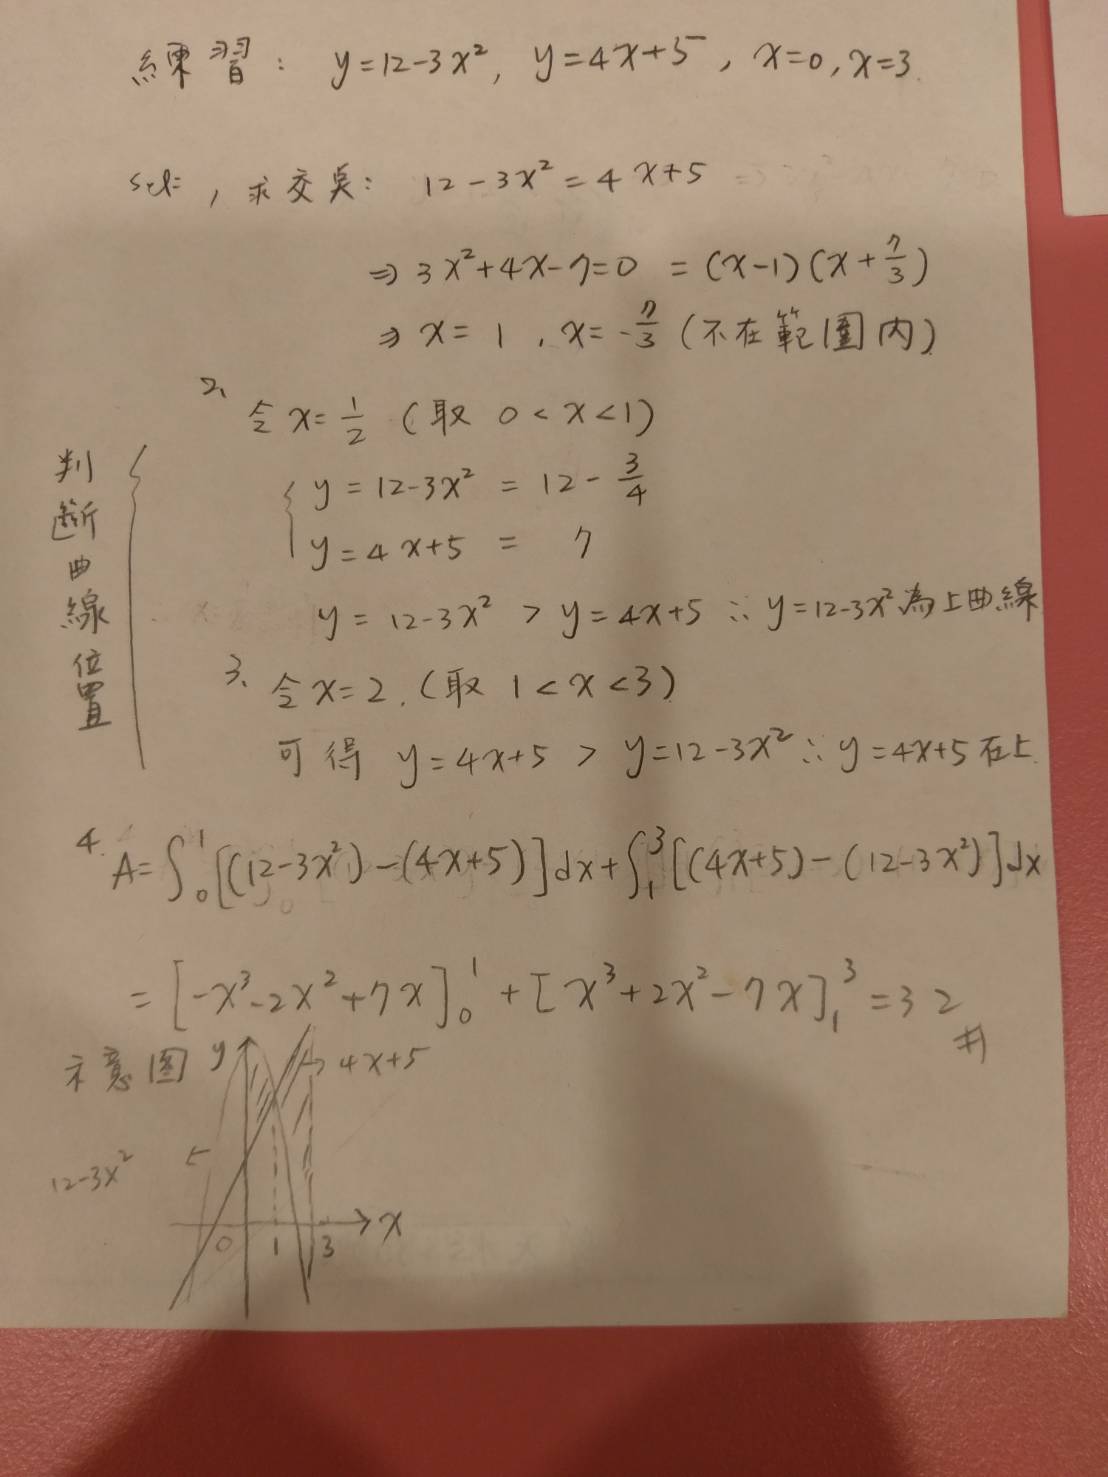 練習： y=12-3x², y=4x+5, x=0, x=3.
sol: , 求交点: 12-3x²=4x+5
⇒ 3x²+4x-7=0 = (x-1)(x+7/3)
⇒ x=1, x=-7/3 (不在範圍內)
2、令 x=1/2 (取 0<x<1)
判斷曲線位置
y=12-3x² = 12-3/4
y=4x+5 = 7
y=12-3x² > y=4x+5 ∴ y=12-3x² 為上曲線
3、令 x=2. (取 1<x<3)
可得 y=4x+5 > y=12-3x² ∴ y=4x+5 在上.
4. A=∫₀¹[(12-3x²)-(4x+5)]dx+∫₁³[(4x+5)-(12-3x²)]dx
= [-x³-2x²+7x]₀¹ + [x³+2x²-7x]₁³ = 32 #
示意图 y 4x+5
12-3x²
x
0 1 3